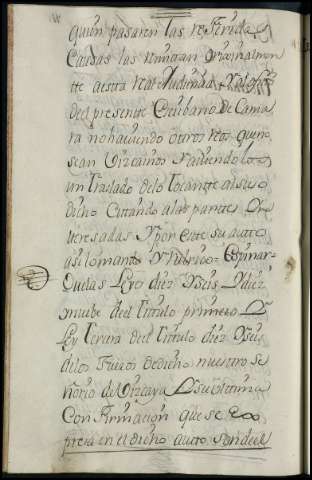 quien pasaren las referidas
Causas las remitan originalmen
tte aesta real Audiencia Yoficio
del presente Escribano De Cama
ra nohaviendo otros reos que no
sean Vizcainos Yaviendolos
un traslado delo tocantte alsuso
dicho Cittando alas partes Yn
teresadas Ypor este su autto
asi lo mando Yrubrico = Copinar
Quelas Leyes diez Yseis Ydiez
nuebe deel titulo primero Y la
Ley tercera deel titulo diez Yseis
delos fueros dedicho nuestro se
ñorio de Vizcaya Ysu ultima
Confirmacion que se ex
presa en el dicho autto son deel